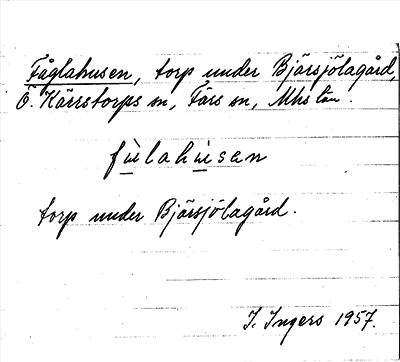 Fåglahusen, torp under Bjärsjölagård,
Ö. Kärrstorps sn, Färs sn, Mhs län.
fùlahùsen
torp under Bjärsjölagård.
I. Ingers 1957.